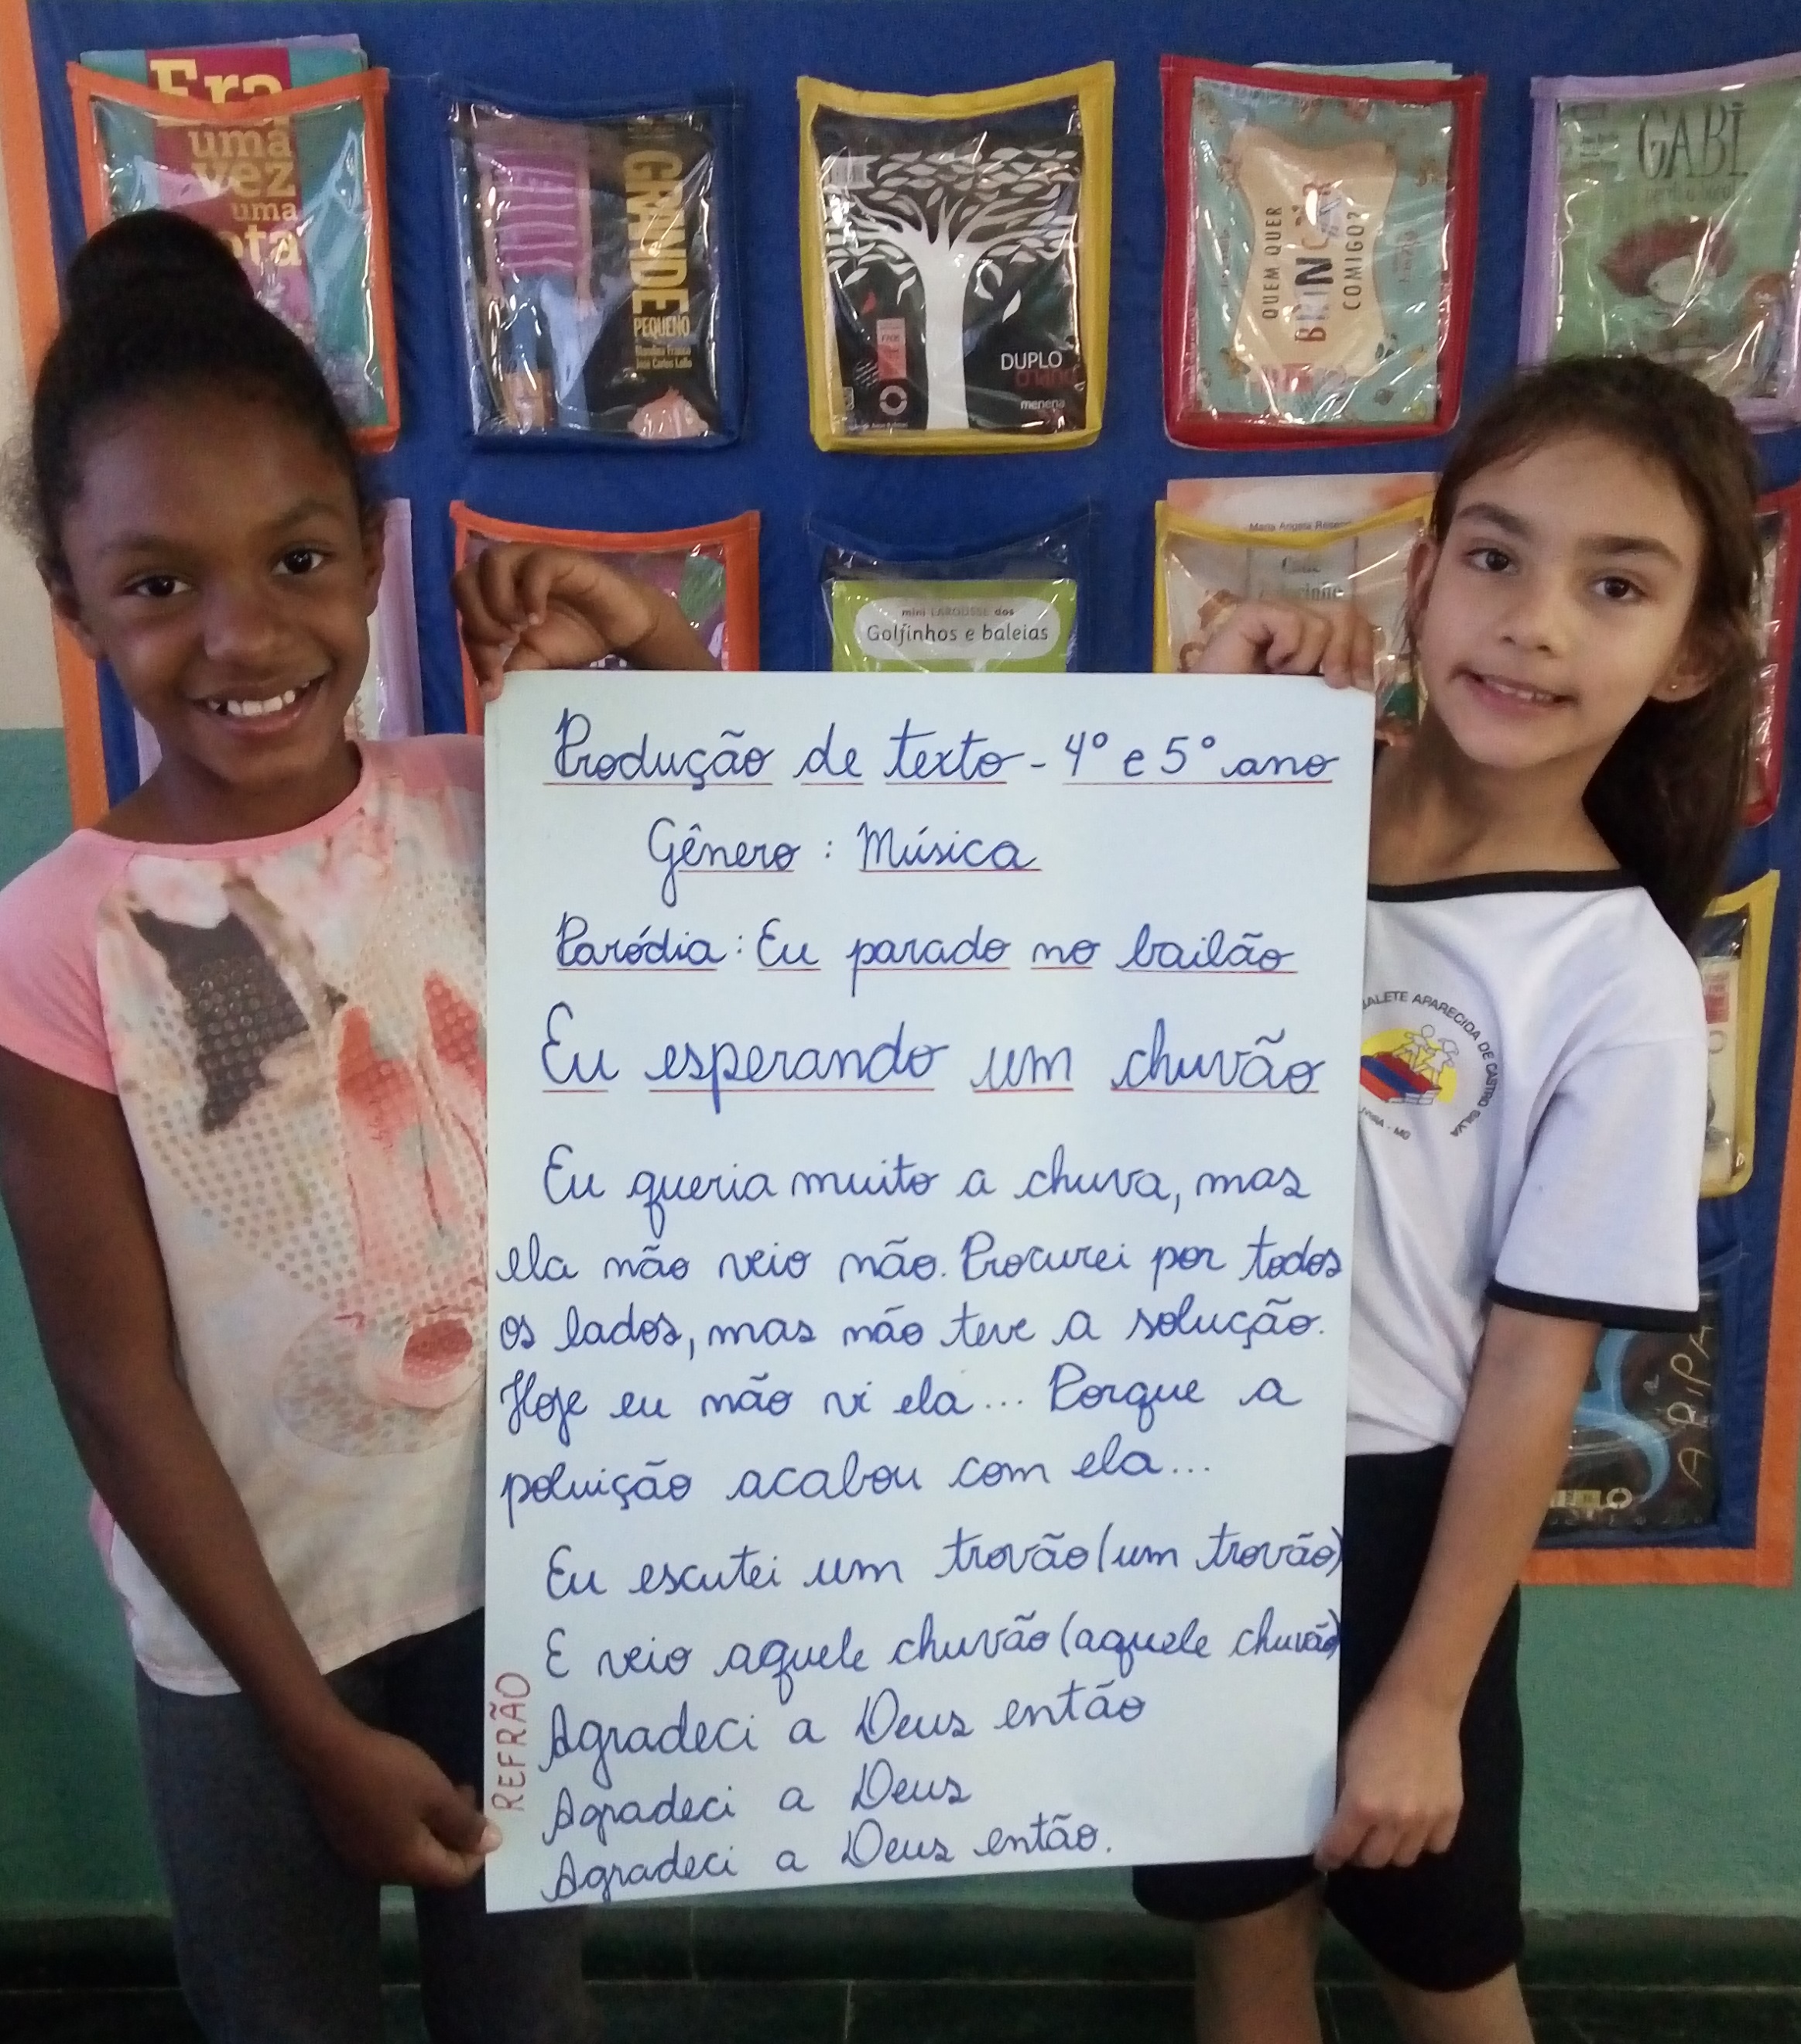 Era
uma
vez
uma
GRANDE
PEQUENO
DUPLO
menena
QUEM QUER
BRINCAR
COMIGO?
GABI
mini LAROUSSE dos
Golfinhos e baleias
Produção de texto - 4º e 5º ano
Gênero: Música
Paródia: Eu parado no bailão
Eu esperando um chuvão
Eu queria muito a chuva, mas
ela não veio não. Procurei por todos
os lados, mas não teve a solução.
Hoje eu não vi ela... Porque a
poluição acabou com ela...
Eu escutei um trovão (um trovão)
E veio aquele chuvão (aquele chuvão)
Agradeci a Deus então
Agradeci a Deus
Agradeci a Deus então.
REFRÃO
APARECIDA DE CASTRO SILVA
- MG
A PIPA